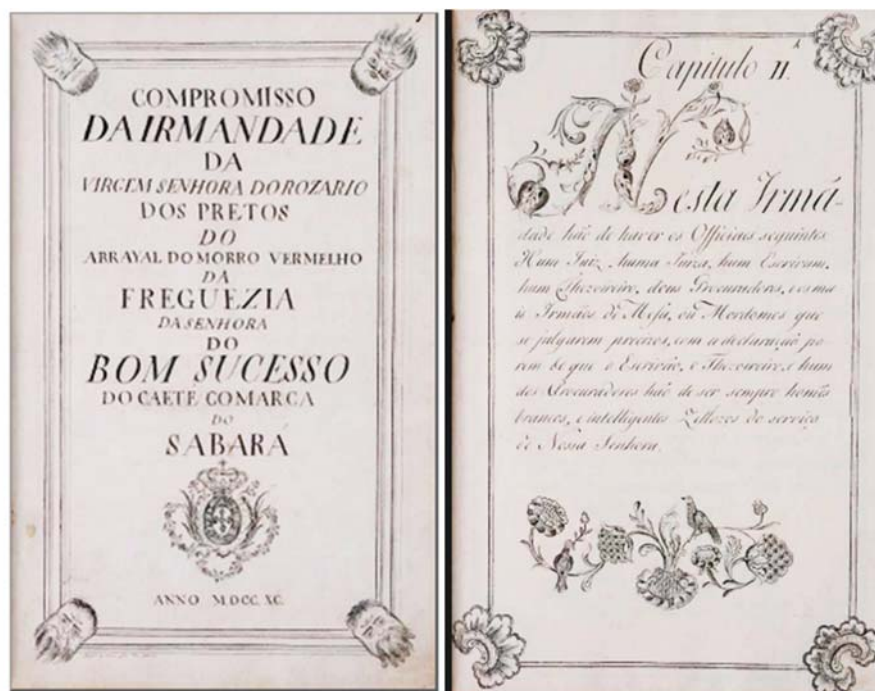 COMPROMISSO
DA IRMANDADE
DA
VIRGEM SENHORA DO ROZARIO
DOS PRETOS
DO
ARRAYAL DO MORRO VERMELHO
DA
FREGUEZIA
DA SENHORA
DO
BOM SUCESSO
DO CAETÉ COMARCA
DO
SABARÁ
ANNO M.DCC.XC.
Capitulo II.
Nesta Irmã-
dade hão de haver os Officiaes seguintes
Hum Juiz, huma Juiza, hum Escrivam,
hum Thezoireiro, dous Procuradores, e os ma
is Irmãos de Mesa, ou Mordomos que
se julgarem precizos, com a declaração po-
rem de que o Escrivão, e Thezoireiro, e hum
dos Procuradores hão de ser sempre homẽs
brancos, e intelligentes Zellozos do serviço
de Nossa Senhora.